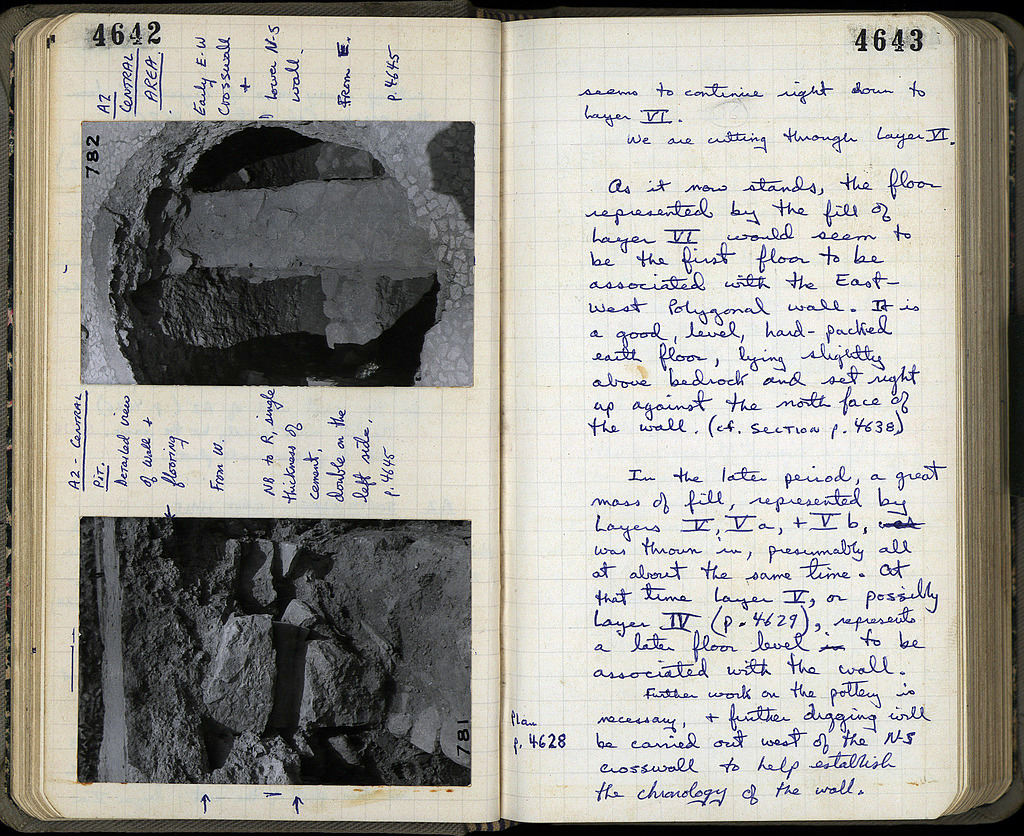 4642
A2
CENTRAL
AREA.
Early E-W
Crosswall
+
lower N-S
wall.
From E.
p. 4645
782
A2 - CENTRAL
PIT
Detailed view
of wall +
flooring
From W.
NB to R, single
thickness of
cement,
double on the
left side.
p. 4645
781
4643
seems to continue right down to
Layer VI.
We are cutting through Layer VI.
As it now stands, the floor
represented by the fill of
Layer VI would seem to
be the first floor to be
associated with the East-
West Polygonal wall. It is
a good, level, hard-packed
earth floor, lying slightly
above bedrock and set right
up against the north face of
the wall. (cf. SECTION p. 4638)
In the later period, a great
mass of fill, represented by
Layers V, V a, + V b,
was thrown in, presumably all
at about the same time. At
that time Layer V, or possibly
Layer IV (p. 4629), represents
a later floor level to be
associated with the wall.
Further work on the pottery is
necessary, + further digging will
Plan
p. 4628
be carried out west of the N-S
crosswall to help establish
the chronology of the wall.